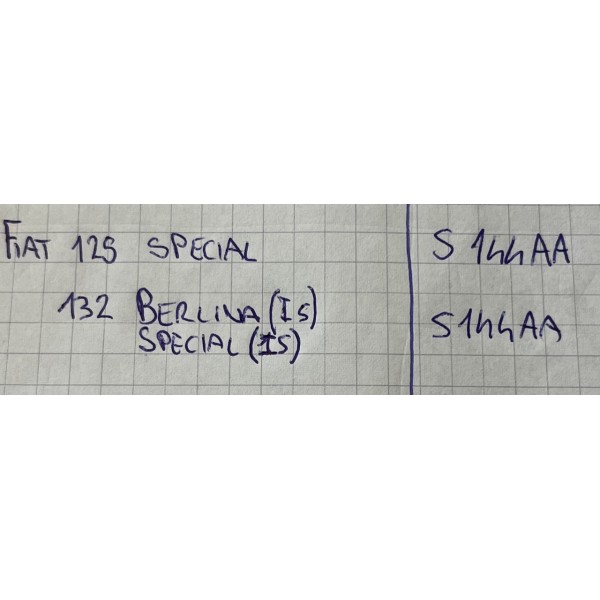 FIAT 125 SPECIAL S144AA
132 BERLINA (IS) S144AA
SPECIAL (IS)